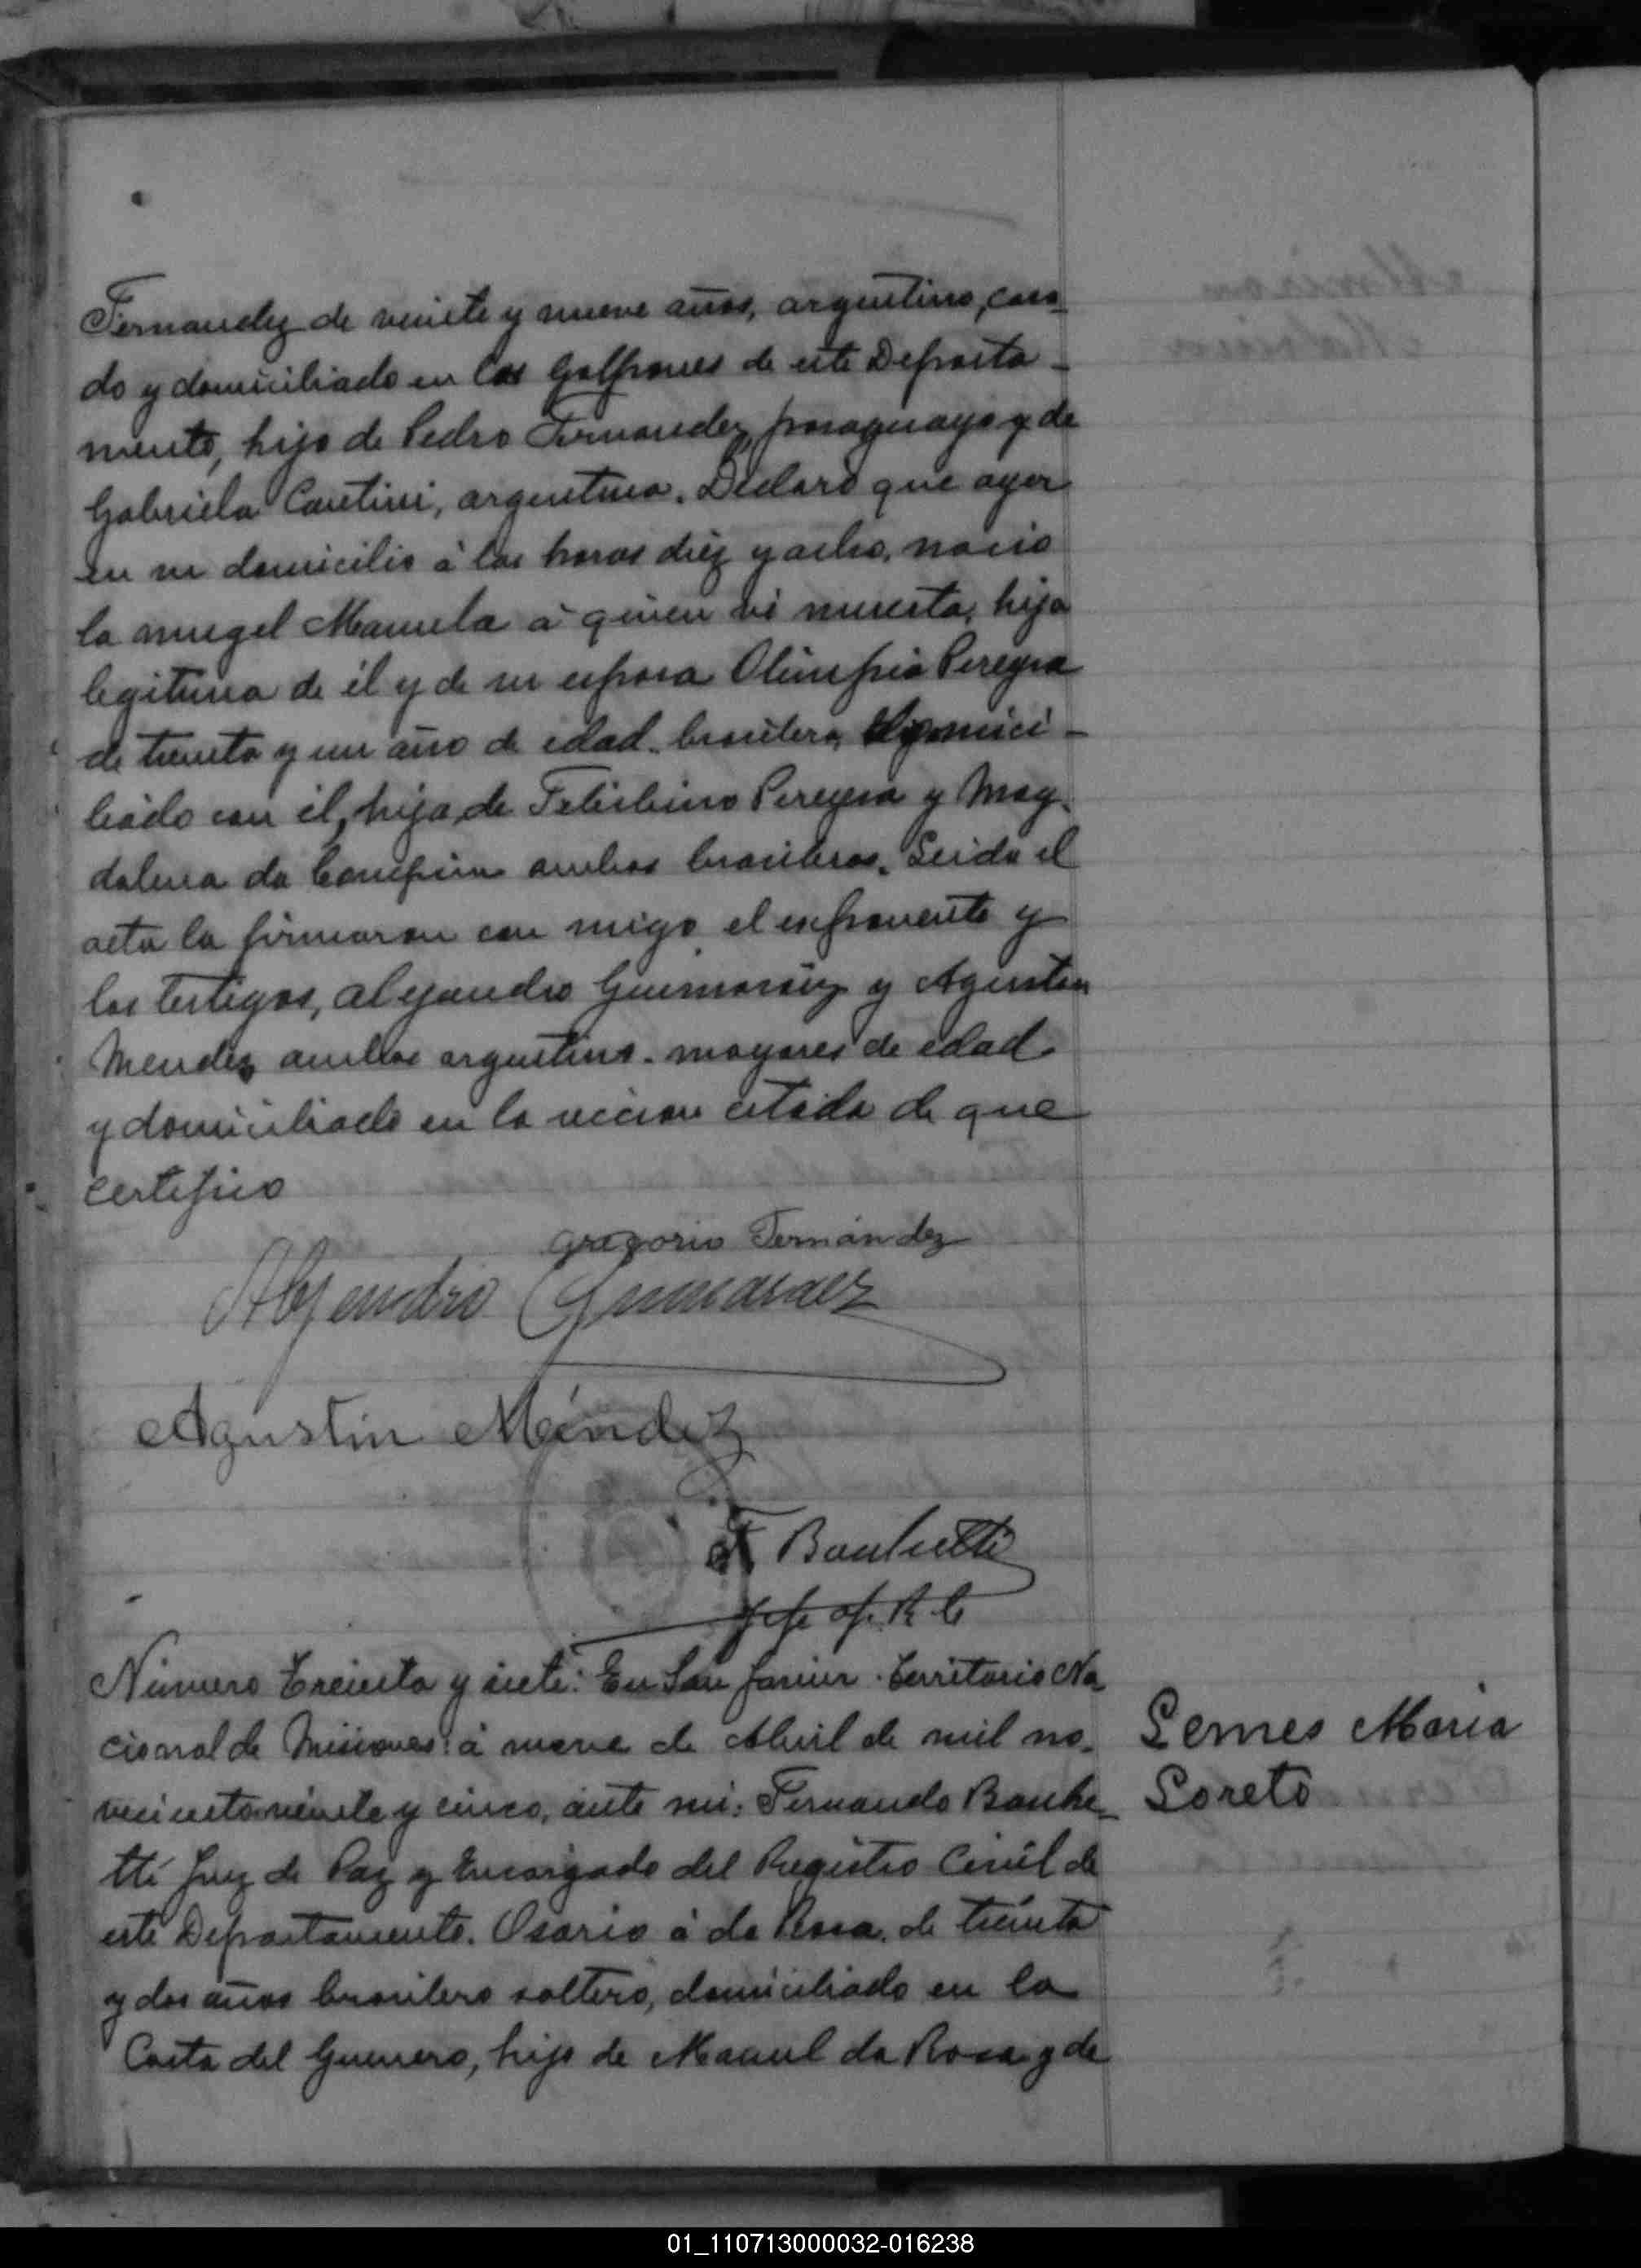 Fernandez de veinte y nueve años, argentino, casa-
do y domiciliado en los Galpones de este Departa-
mento, hijo de Pedro Fernandez, paraguayo y de
Gabriela Cantini, argentina. Declaró que ayer
en su domicilio á las horas diez y ocho, nació
la mugel Manuela á quien vi muerta, hija
legitima de él y de su esposa Olimpia Pereyra
de treinta y un año de edad. brasilera, domici-
liado con él, hija de Pereyra y Mag-
dalena da ambos brasileros. Leida el
acta la firmaron con migo el exponente y
los testigos, Alejandro Guimaraez y Agustin
Mendez ambos argentino. mayores de edad
y domiciliado en la citada de que
certifico
Gregorio Fernández
Alejandro Guimaraez
Agustin Méndez
F Banchetti
Jefe of. R. C
Número treinta y siete: En San Javier. Territorio Na-
cional de Misiones: á nueve de Abril de mil no-
vecientos veinte y cinco, ante mi: Fernando Banche-
tti Juez de Paz y Encargado del Registro Civil de
este Departamento. Osorio á da Rosa, de treinta
y dos años brasilero soltero, domiciliado en la
Costa del Guerrero, hijo de Manuel da Rosa y de
Lemes Maria
Loreto
01_110713000032-016238